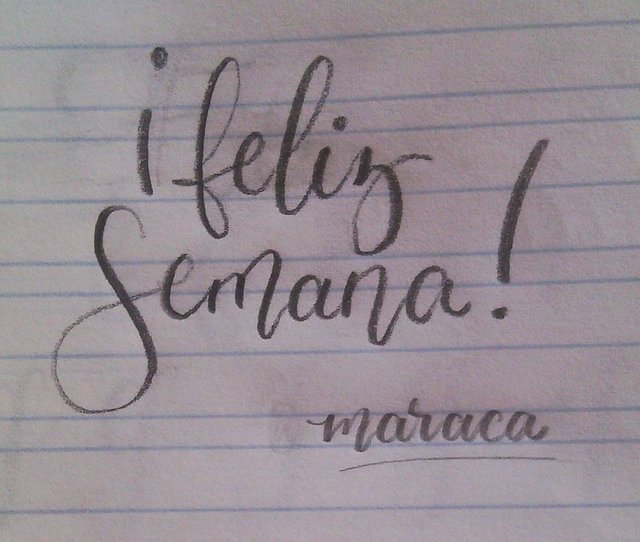 ¡feliz
semana!
maraca